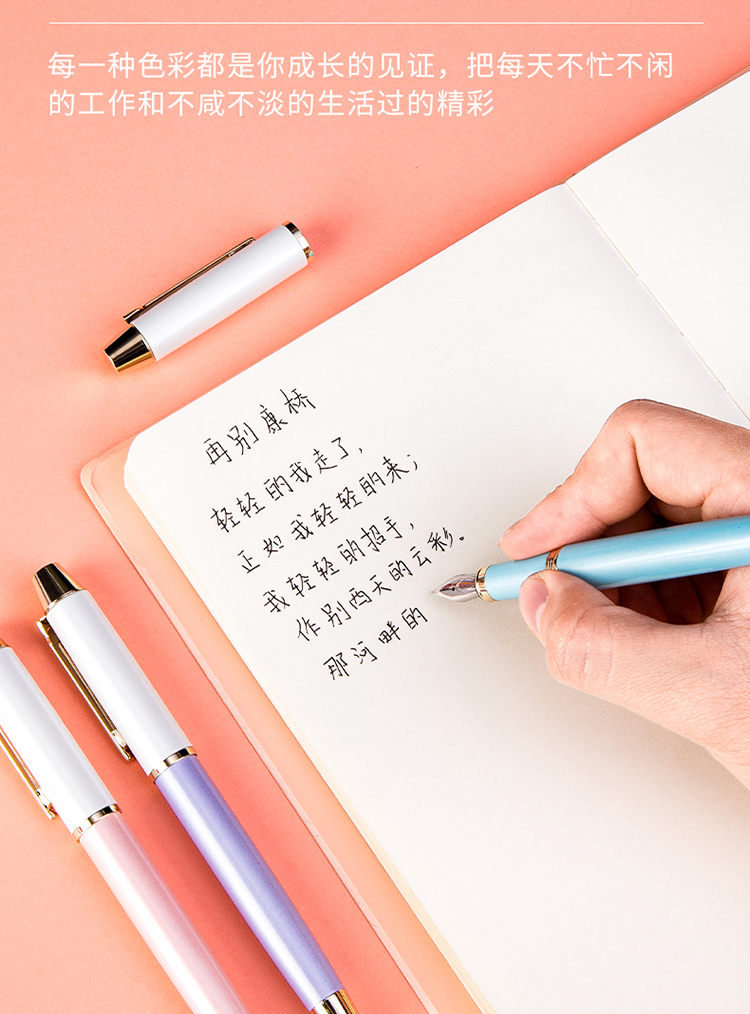 每一种色彩都是你成长的见证，把每天不忙不闲
的工作和不咸不淡的生活过的精彩
再别康桥
轻轻的我走了，
正如我轻轻的来；
我轻轻的招手，
作别两天的云彩。
那河畔的